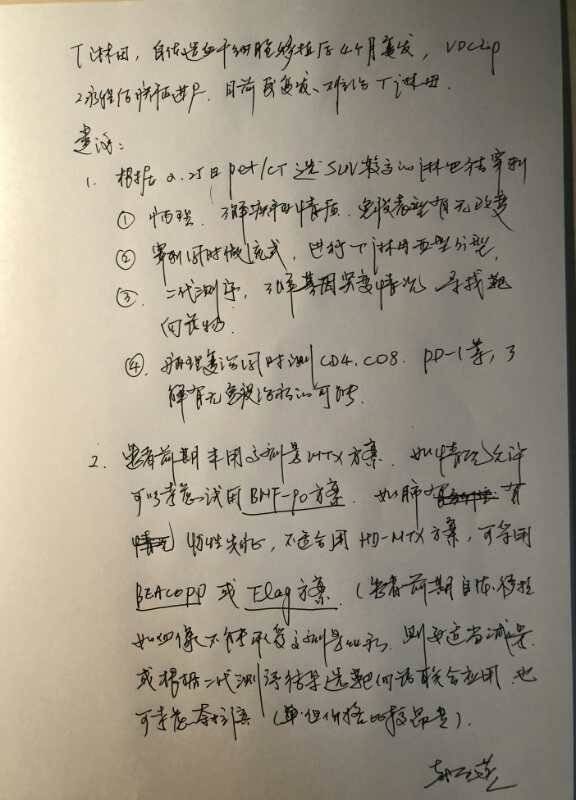 T淋母, 自体造血干细胞移植后4个月复发, VDCLP
2疗程后肺部进展. 目前为复发、难治 T淋母.
建议:
1. 根据2.25日pet/CT选SUV较高的淋巴结穿刺
① 病理. 了解组织性质. 免疫表型有无改变
② 穿刺同时做流式, 进行T淋母亚型分型,
③. 二代测序, 了解基因突变情况 寻找靶
向药物.
④. 病理建议同时测CD4. CD8. PD-1等, 了
解有无免疫治疗的可能.
2. 患者前期未用过剂量MTX方案. 如情况允许
可以考虑试用BMF-90方案. 如肺有
活性病灶, 不适合用HD-MTX方案, 可采用
BEACOPP或Flag方案. (患者前期自体移植
如血像不能承受大剂量化疗. 则要适当减量.
或根据二代测序结果选靶向药联合应用. 也
可考虑奈拉滨 (单但价格比较昂贵).